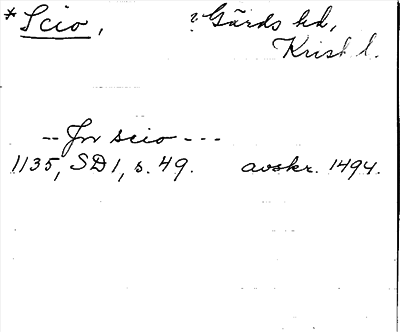 *Scio,
? Gärds hd,
Krist. l.
-- Jn scio ---
1135, SD 1, s. 49. avskr. 1494.